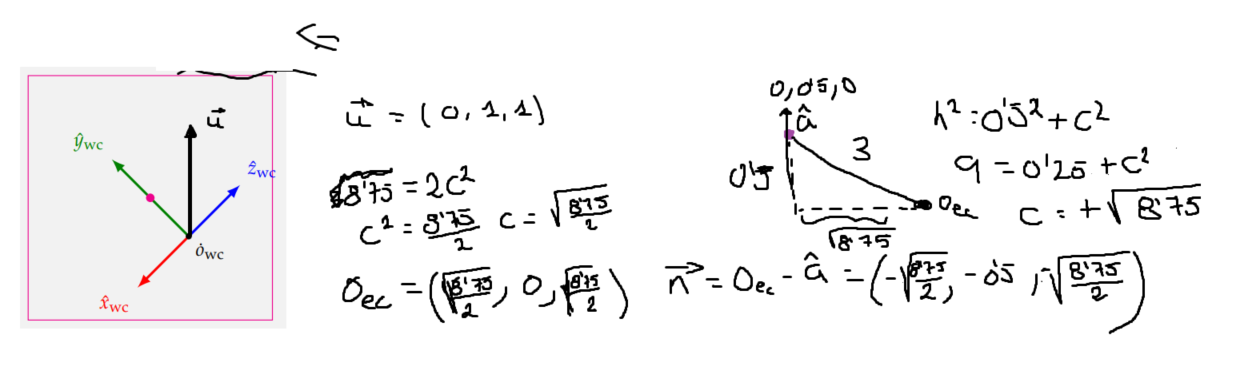 u⃗
ŷwc
ẑwc
ȯwc
x̂wc
u⃗ = (0, 1, 1)
√8'75 = 2c²
c² = 8'75/2 c = √(8'75/2)
Oec = (√(8'75/2), 0, √(8'75/2))
0, 0'5, 0
â
3
0'5
Oec
√8'75
h² = 0'5² + c²
9 = 0'25 + c²
c = +√8'75
n⃗ = Oec - â = (-√(8'75/2), -0'5, -√(8'75/2))